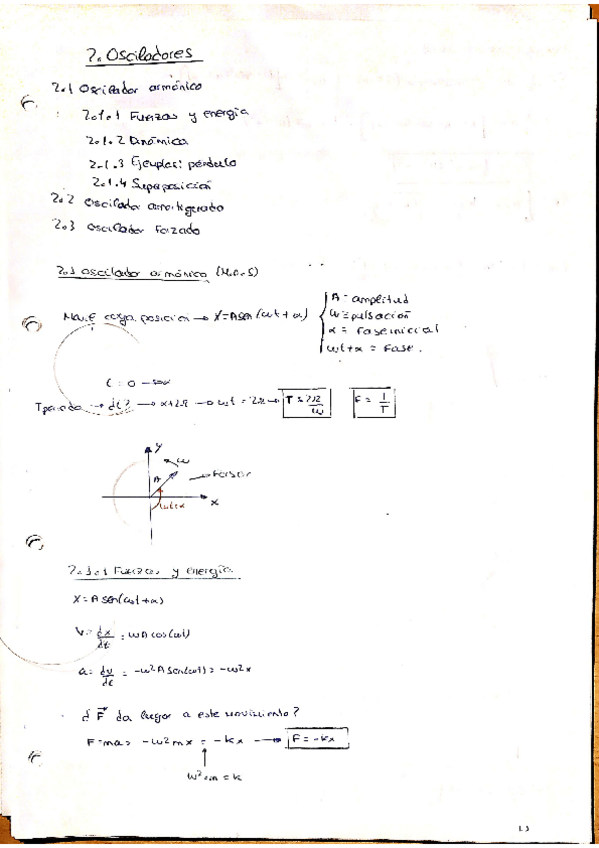 2. Osciladores
2.1 Oscilador armónico
2.1.1 Fuerzas y energía
2.1.2 Dinámica
2.1.3 Ejemplos: péndulo
2.1.4 Superposición
2.2 Oscilador amortiguado
2.3 Oscilador forzado
2.1 Oscilador armónico (M.A.S)
posición → X = A sen(ωt + α)
A = amplitud
ω = pulsación
α = Fase inicial
ωt + α = Fase.
t = 0
→ x+2π → ωt = 2π → T = 2π/ω F = 1/T
y
ω
A
Fasor
ωt+α
x
2.1.1 Fuerzas y energía
X = A sen(ωt+α)
V = dx/dt = ωA cos(ωt)
a = dv/dt = -ω²A sen(ωt) = -ω²x
¿F⃗ da lugar a este movimiento?
F = ma = -ω²mx = -kx → F = -kx
ω²m = k